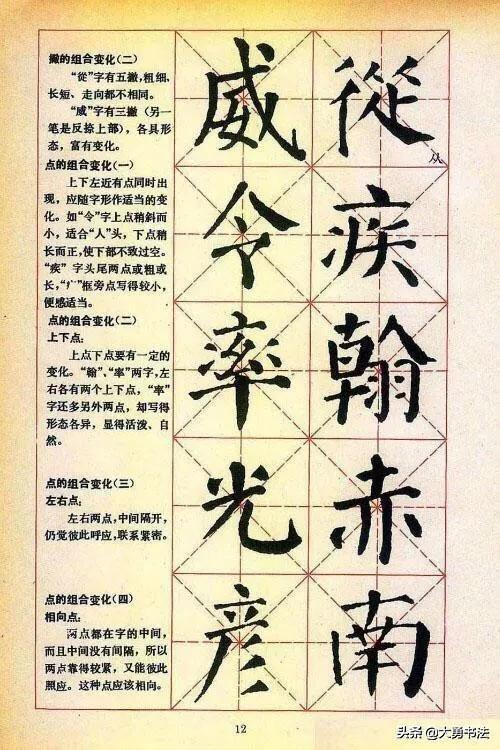 撇的组合变化(二)
“從”字有五撇,粗细、
长短、走向都不相同。
“威”字有三撇(另一
笔是反捺上部),各具形
态,富有变化。
点的组合变化(一)
上下左近有点同时出
现,应随字形作适当的变
化。如“令”字上点稍斜而
小,适合“人”头,下点稍
长而正,使下部不致过空。
“疾”字头尾两点或粗或
长,“疒”框旁点写得较小,
便感适当。
点的组合变化(二)
上下点:
上点下点要有一定的
变化。“翰”、“率”两字,左
右各有两个上下点,“率”
字还多另外两点,却写得
形态各异,显得活泼、自
然。
点的组合变化(三)
左右点:
左右两点,中间隔开,
仍觉彼此呼应,联系紧密。
点的组合变化(四)
相向点:
两点都在字的中间,
而且中间没有间隔,所以
两点靠得较紧,又能彼此
照应。这种点应该相向。
從 从
疾
翰
赤
南
威
令
率
光
彦
12
头条 @大勇书法